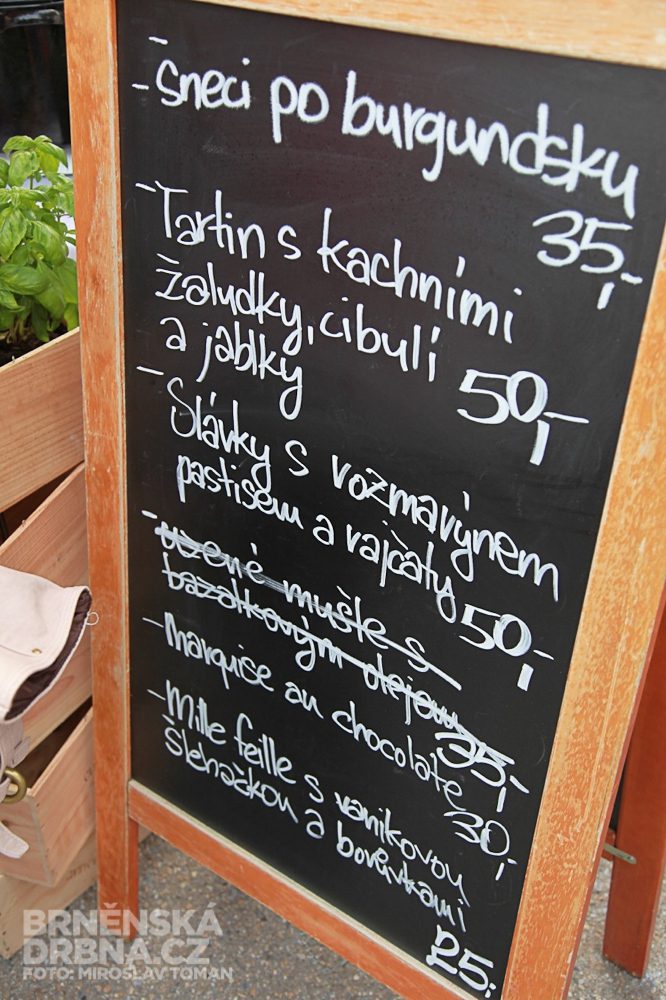 - šneci po burgundsku
35,-
- Tartin s kachními
žaludky, cibulí
a jablky
50,-
- Slávky s rozmarýnem
pastisem a rajčaty
50,-
- uzené mušle s
bazalkovým olejem
35,-
- Marquise au chocolate
30,-
- Mille feille s vanikovou
šlehačkou a borůvkami
25,-
BRNĚNSKÁ
DRBNA.CZ
FOTO: MIROSLAV TOMAN